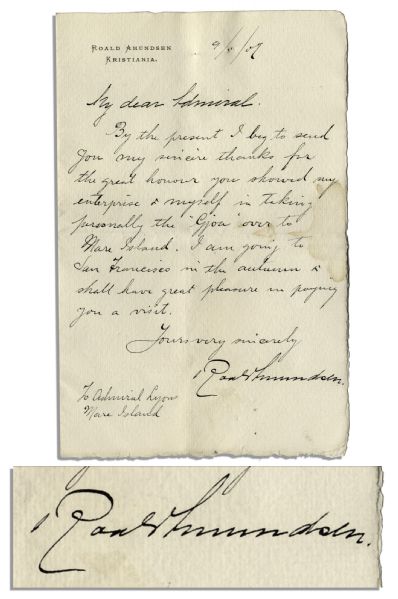 ROALD AMUNDSEN
KRISTIANIA.
9/5/07
My dear Admiral.
By the present I beg to send
you my sincere thanks for
the great honour you showed my
enterprise & myself in taking
personally the "Gjøa" over to
Mare Island. I am going to
San Francisco in the autumn &
shall have great pleasure in paying
you a visit.
Yours very sincerely
Roald Amundsen.
To Admiral Lyon
Mare Island
Roald Amundsen.